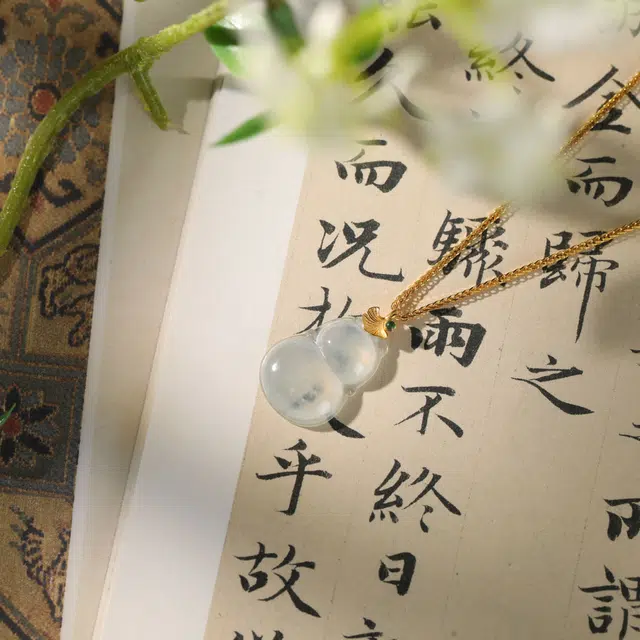 謂
全而歸之
終 驟雨不終日
久而況 乎故